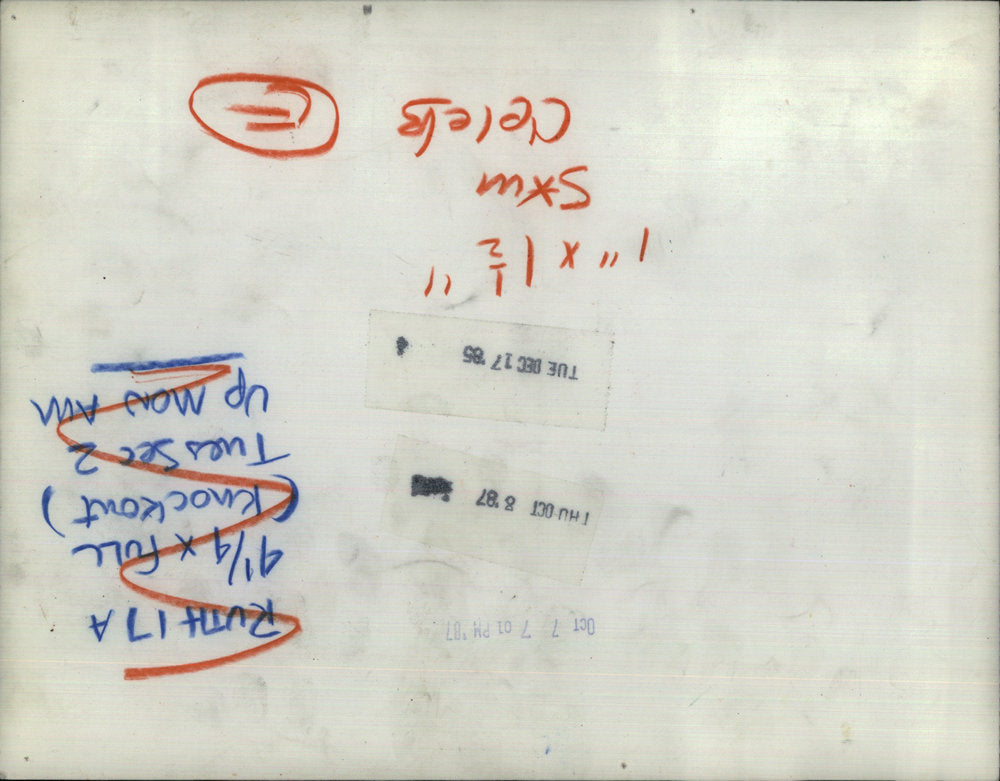 OCT 7 7 01 PM '87
THU OCT 8 '87
TUE DEC 17 '85
1" x 1 1/2"
Celeb
RUTH 17A
4 1/4 x FULL
(Knockout)
Tues Sec 2
Up MON AM